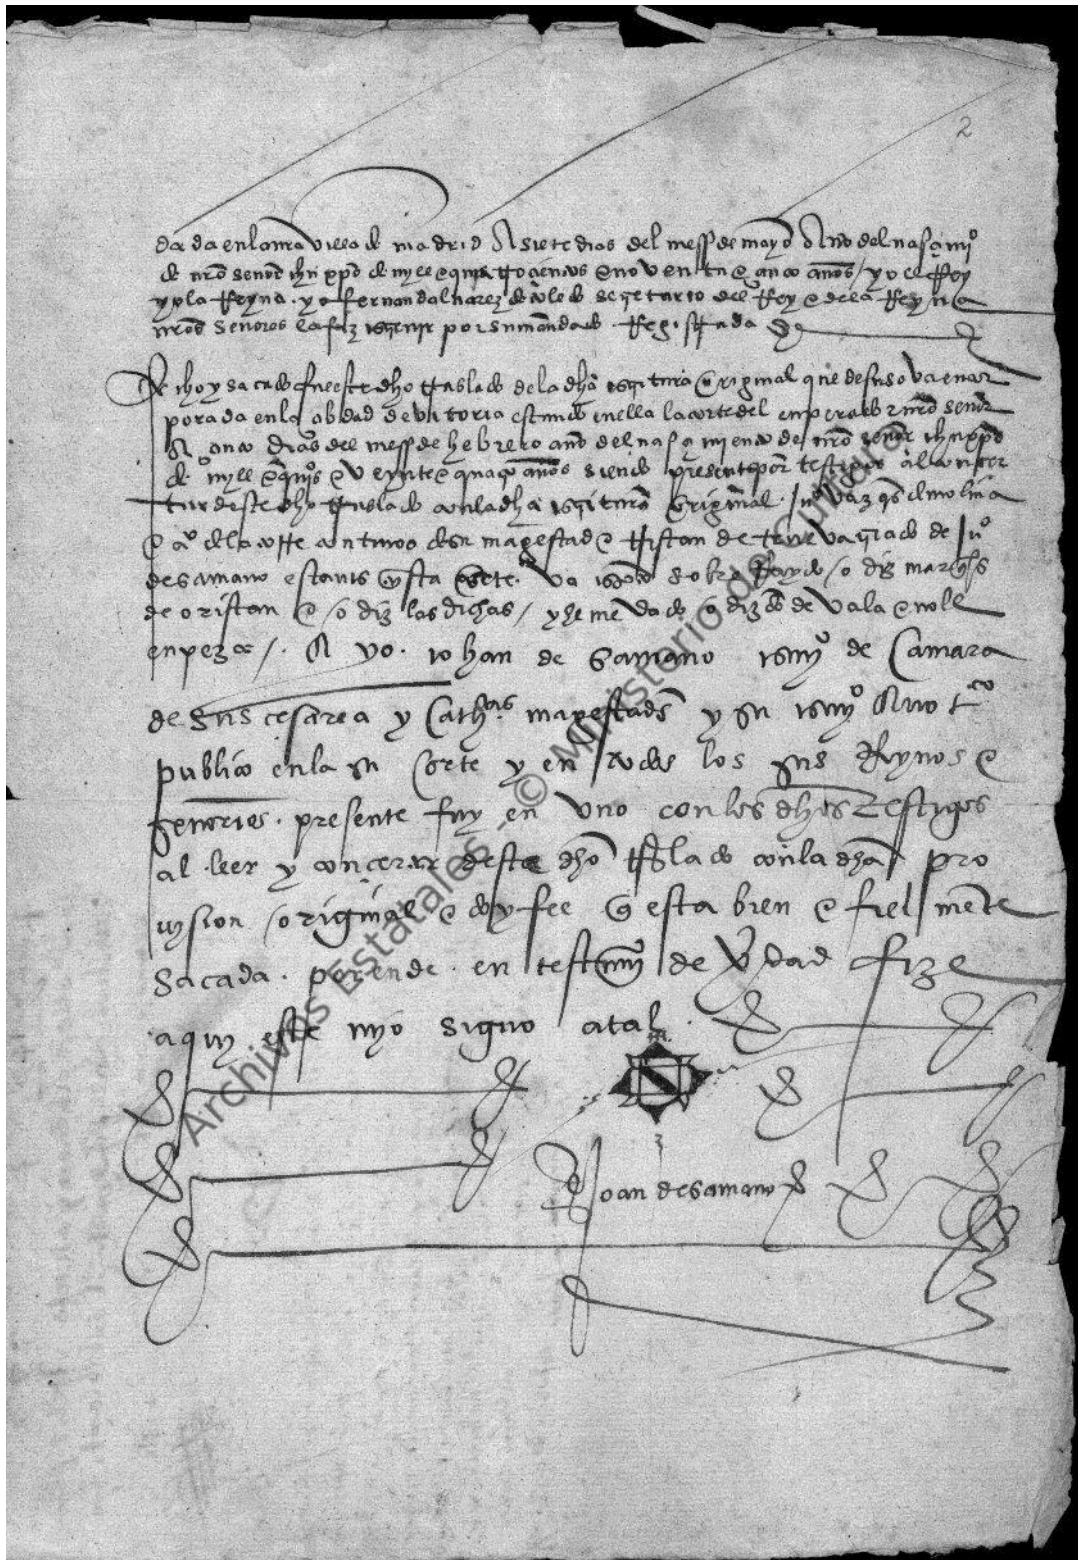 2
dada en la nra villa de madrid A siete dias del mess de mayo Año del nasçimiº
de nro señor ihu xpo de myll e quatroçientos e noventa e çinco años / yo el Rey
yo la Reyna. yo fernand alvarez de toledo secretario del Rey e de la Reyna
nros señores la fiz escrevir por su mandado. Registrada
ffecho y sacado fue este dho traslado de la dha escritura original que desuso va encor
porada en la cibdad de vitoria estando en ella la corte del emperador nro señor
A çinco dias del mess de hebrero año del nasçimiento de nro señor ihu xpo
de myll e quiºs e veynte e quatro años siendo presentes por testigos al conçer
tar deste dho traslado con la dha escritura original. juº vazqs de molina
e de la corte contino de su magestad e tristan de criado de juº
de samano estants en esta corte. va escrito sobre Raydo / o diz marqs
de oristan e / o diz las dichas / y hemendado o diz do de vala e noll
enpezca /. A yo. johan de Samano escrivº de Camara
de Sus cesarea y Cathcas magestades y su escrivº A notcº
publico en la su Corte y en todos los sus Reynos e
señorios. presente fuy en uno con los dhos Testigos
al leer y conçertar deste dho traslado con la dha pro
vysion / original e doy fee q esta bien e fiel mente
Sacada. por ende. en testimº de verdad fize
aquy este myo signo atal.
Joan de samano
Archivos Estatales - © Ministerio de Cultura